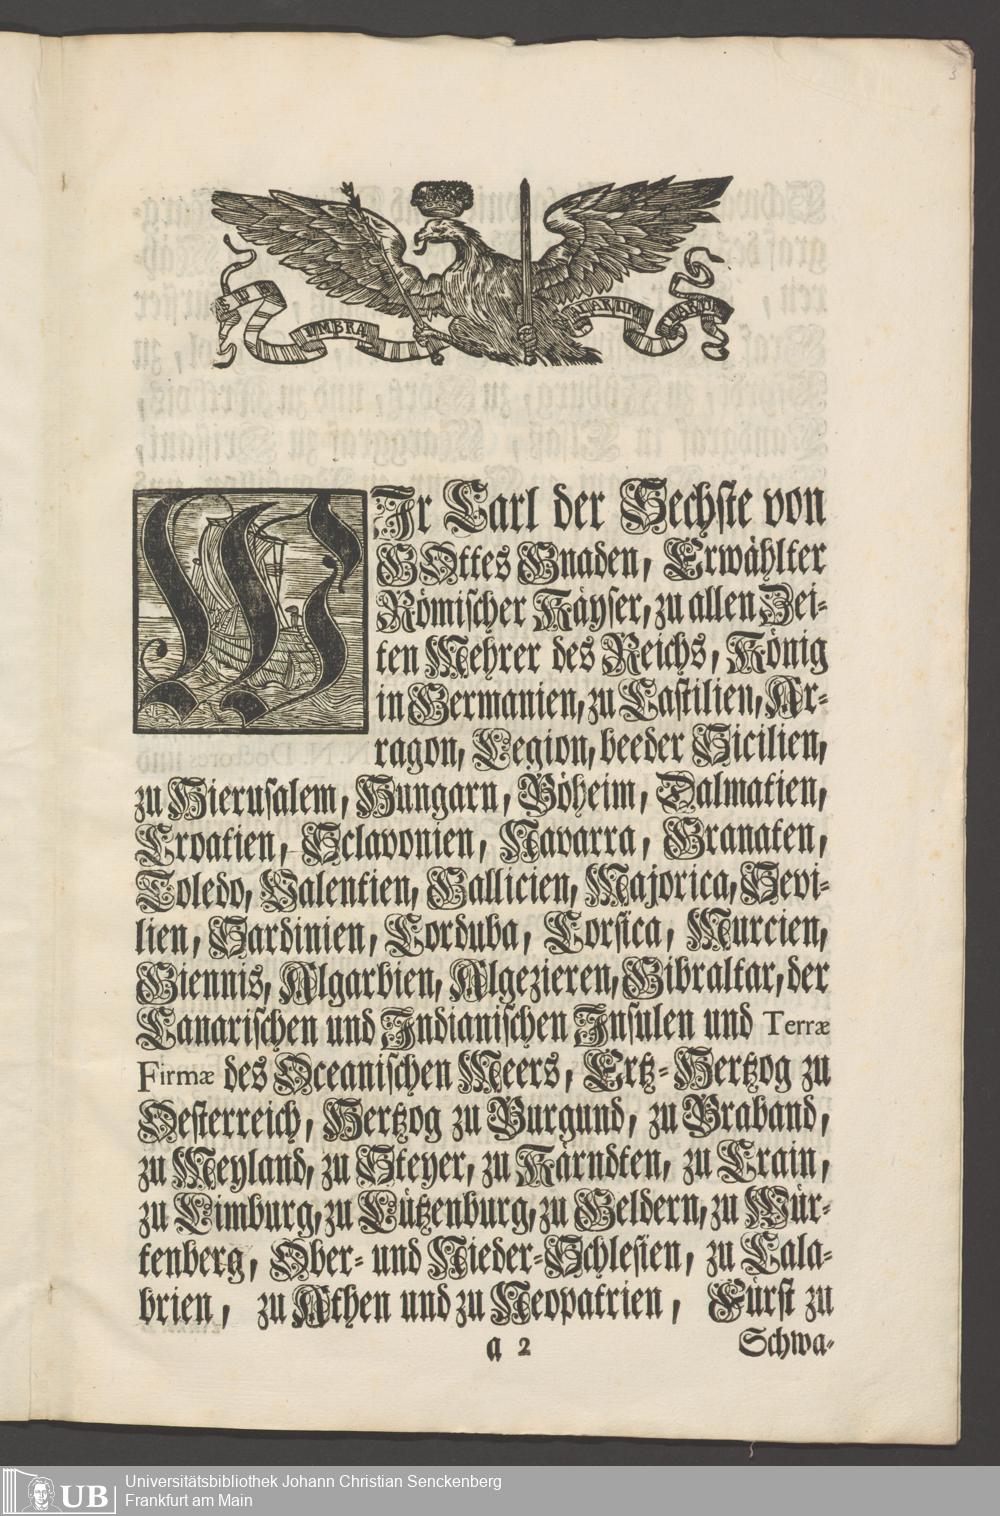 3
SUB
UMBRA
ALARUM
TUARUM
WJr Carl der Sechste von
GOttes Gnaden, Erwählter
Römischer Käyser, zu allen Zei-
ten Mehrer des Reichs, König
in Germanien, zu Castilien, Ar-
ragon, Legion, beeder Sicilien,
zu Hierusalem, Hungarn, Böheim, Dalmatien,
Croatien, Sclavonien, Navarra, Granaten,
Toledo, Valentien, Gallicien, Majorica, Sevi-
lien, Sardinien, Corduba, Corsica, Murcien,
Giennis, Algarbien, Algezieren, Gibraltar, der
Canarischen und Jndianischen Jnsulen und Terræ
Firmæ des Oceanischen Meers, Ertz-Hertzog zu
Oesterreich, Hertzog zu Burgund, zu Braband,
zu Meyland, zu Steyer, zu Kärndten, zu Crain,
zu Limburg, zu Lützenburg, zu Geldern, zu Wür-
tenberg, Ober- und Nieder-Schlesien, zu Cala-
brien, zu Athen und zu Neopatrien, Fürst zu
a 2
Schwa-
UB
Universitätsbibliothek Johann Christian Senckenberg
Frankfurt am Main